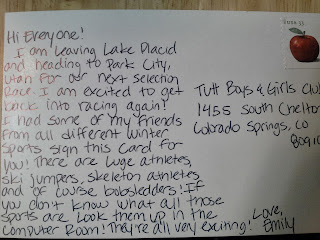 Hi Everyone!
I am leaving Lake Placid
and heading to Park City,
Utah for our next selection
Race. I am excited to get
back into racing again!
I had some of my friends
from all different winter
sports sign this card for
you! There are luge athletes,
ski jumpers, skeleton athletes
and of course bobsledders! If
you don't know what all those
sports are look them up in the
computer Room! They're all very exciting!
Love,
Emily
Tutt Boys & Girls Clu
1455 South Chelton
Colorado Springs, CO